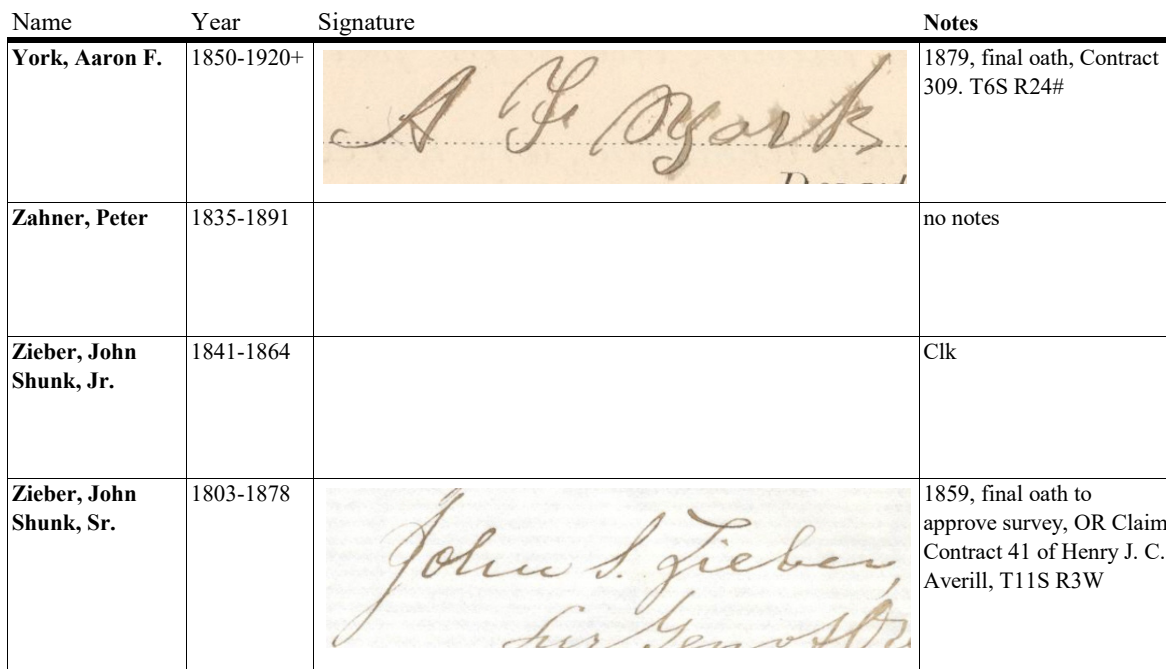 Name Year Signature Notes
York, Aaron F. 1850-1920+ A F York 1879, final oath, Contract
309. T6S R24#
Zahner, Peter 1835-1891 no notes
Zieber, John 1841-1864 Clk
Shunk, Jr.
Zieber, John 1803-1878 John S. Zieber, 1859, final oath to
Shunk, Sr. approve survey, OR Claim
Contract 41 of Henry J. C.
Averill, T11S R3W
Sur Gen of